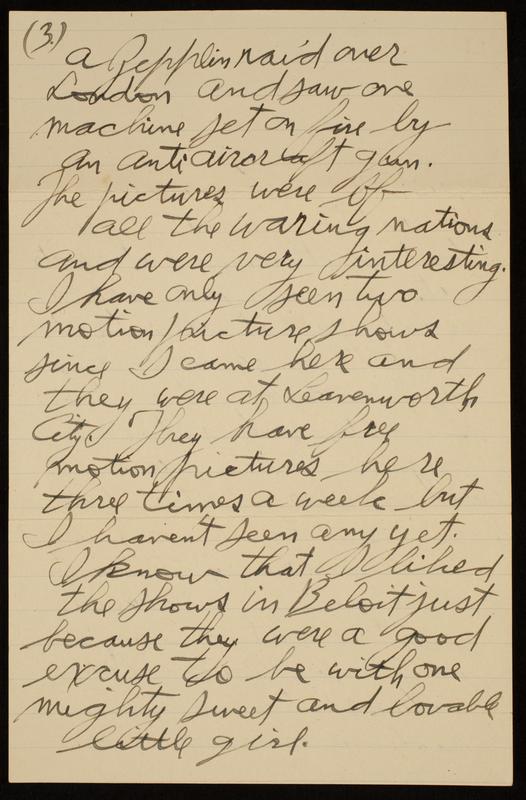 (3.)
a Zepplin raid over
London and saw one
machine set on fire by
an antiaircraft gun.
The pictures were of
all the waring nations
and were very interesting.
I have only seen two
motion picture shows
since I came here and
they were at Leavenworth
City. They have free
motion pictures here
three times a week but
I haven't seen any yet.
I know that I liked
the shows in Beloit just
because they were a good
excuse to be with one
mighty sweet and lovable
little girl.